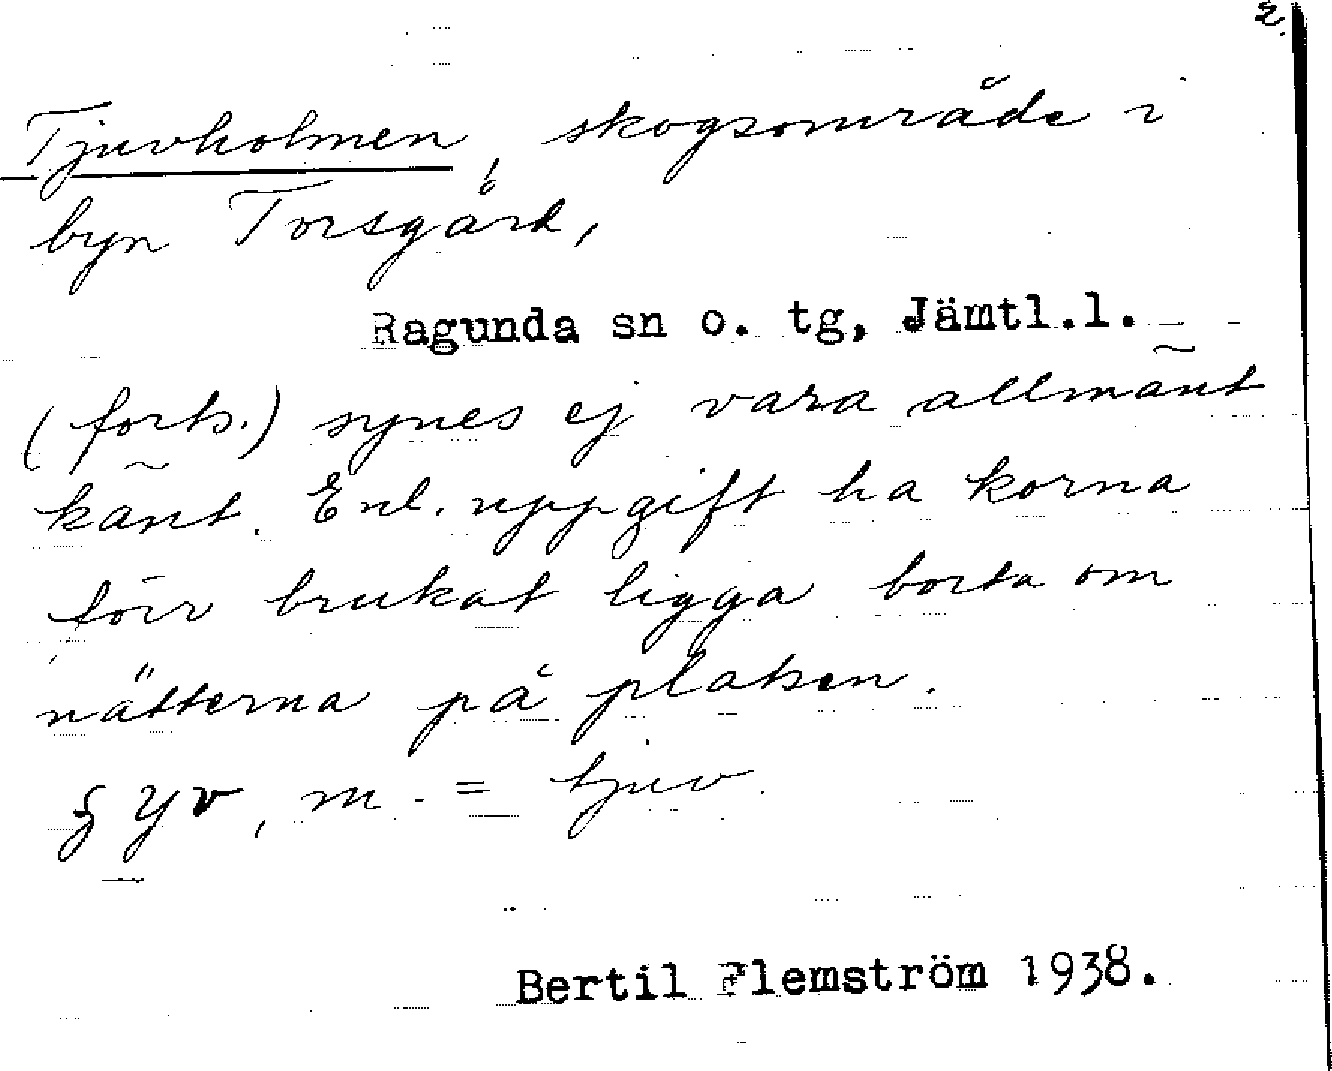 2.
Tjuvholmen, skogsområde i
byn Torsgård,
Ragunda sn o. tg, Jämtl.l.
(forts.) synes ej vara allmänt
känt. Enl. uppgift ha korna
förr brukat ligga borta om
nätterna på platsen.
yv, m. = tjuv.
Bertil Flemström 1938.